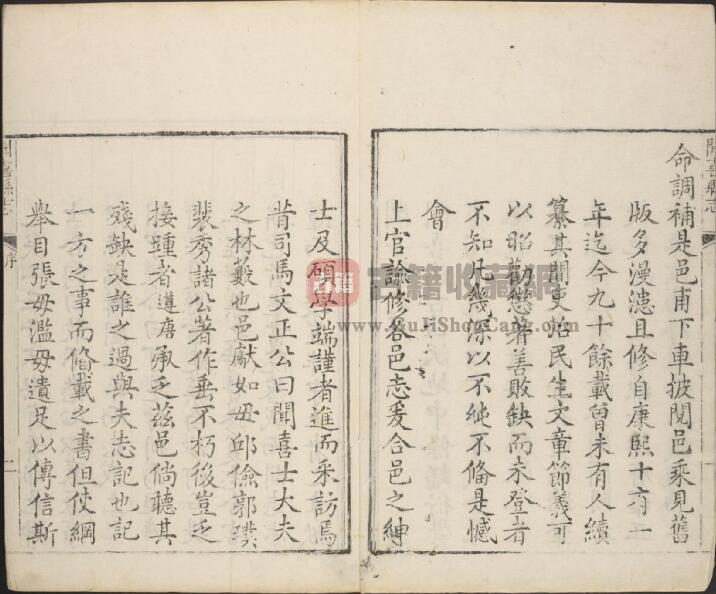 命調補是邑甫下車披閱邑乘見舊
版多漫漶且修自康熙十有一
年迄今九十餘載曾未有人續
纂其間吏治民生文章節義可
以昭勸懲著善敗缺而未登者
不知凡幾深以不純不俻是憾
會
上官諭修各邑志爰合邑之紳
士及碩學端謹者進而采訪焉
昔司馬文正公曰聞喜士大夫
之林藪也邑獻如毋邱儉郭璞
裴秀諸公著作垂不朽後豈乏
接踵者遵唐承乏茲邑倘聽其
殘缺是誰之過與夫志記也記
一方之事而俻載之書但使綱
舉目張毋濫毋遺足以傳信斯
聞喜縣志
序
二
古籍
古籍收藏网
www.GuJiShouCang.com